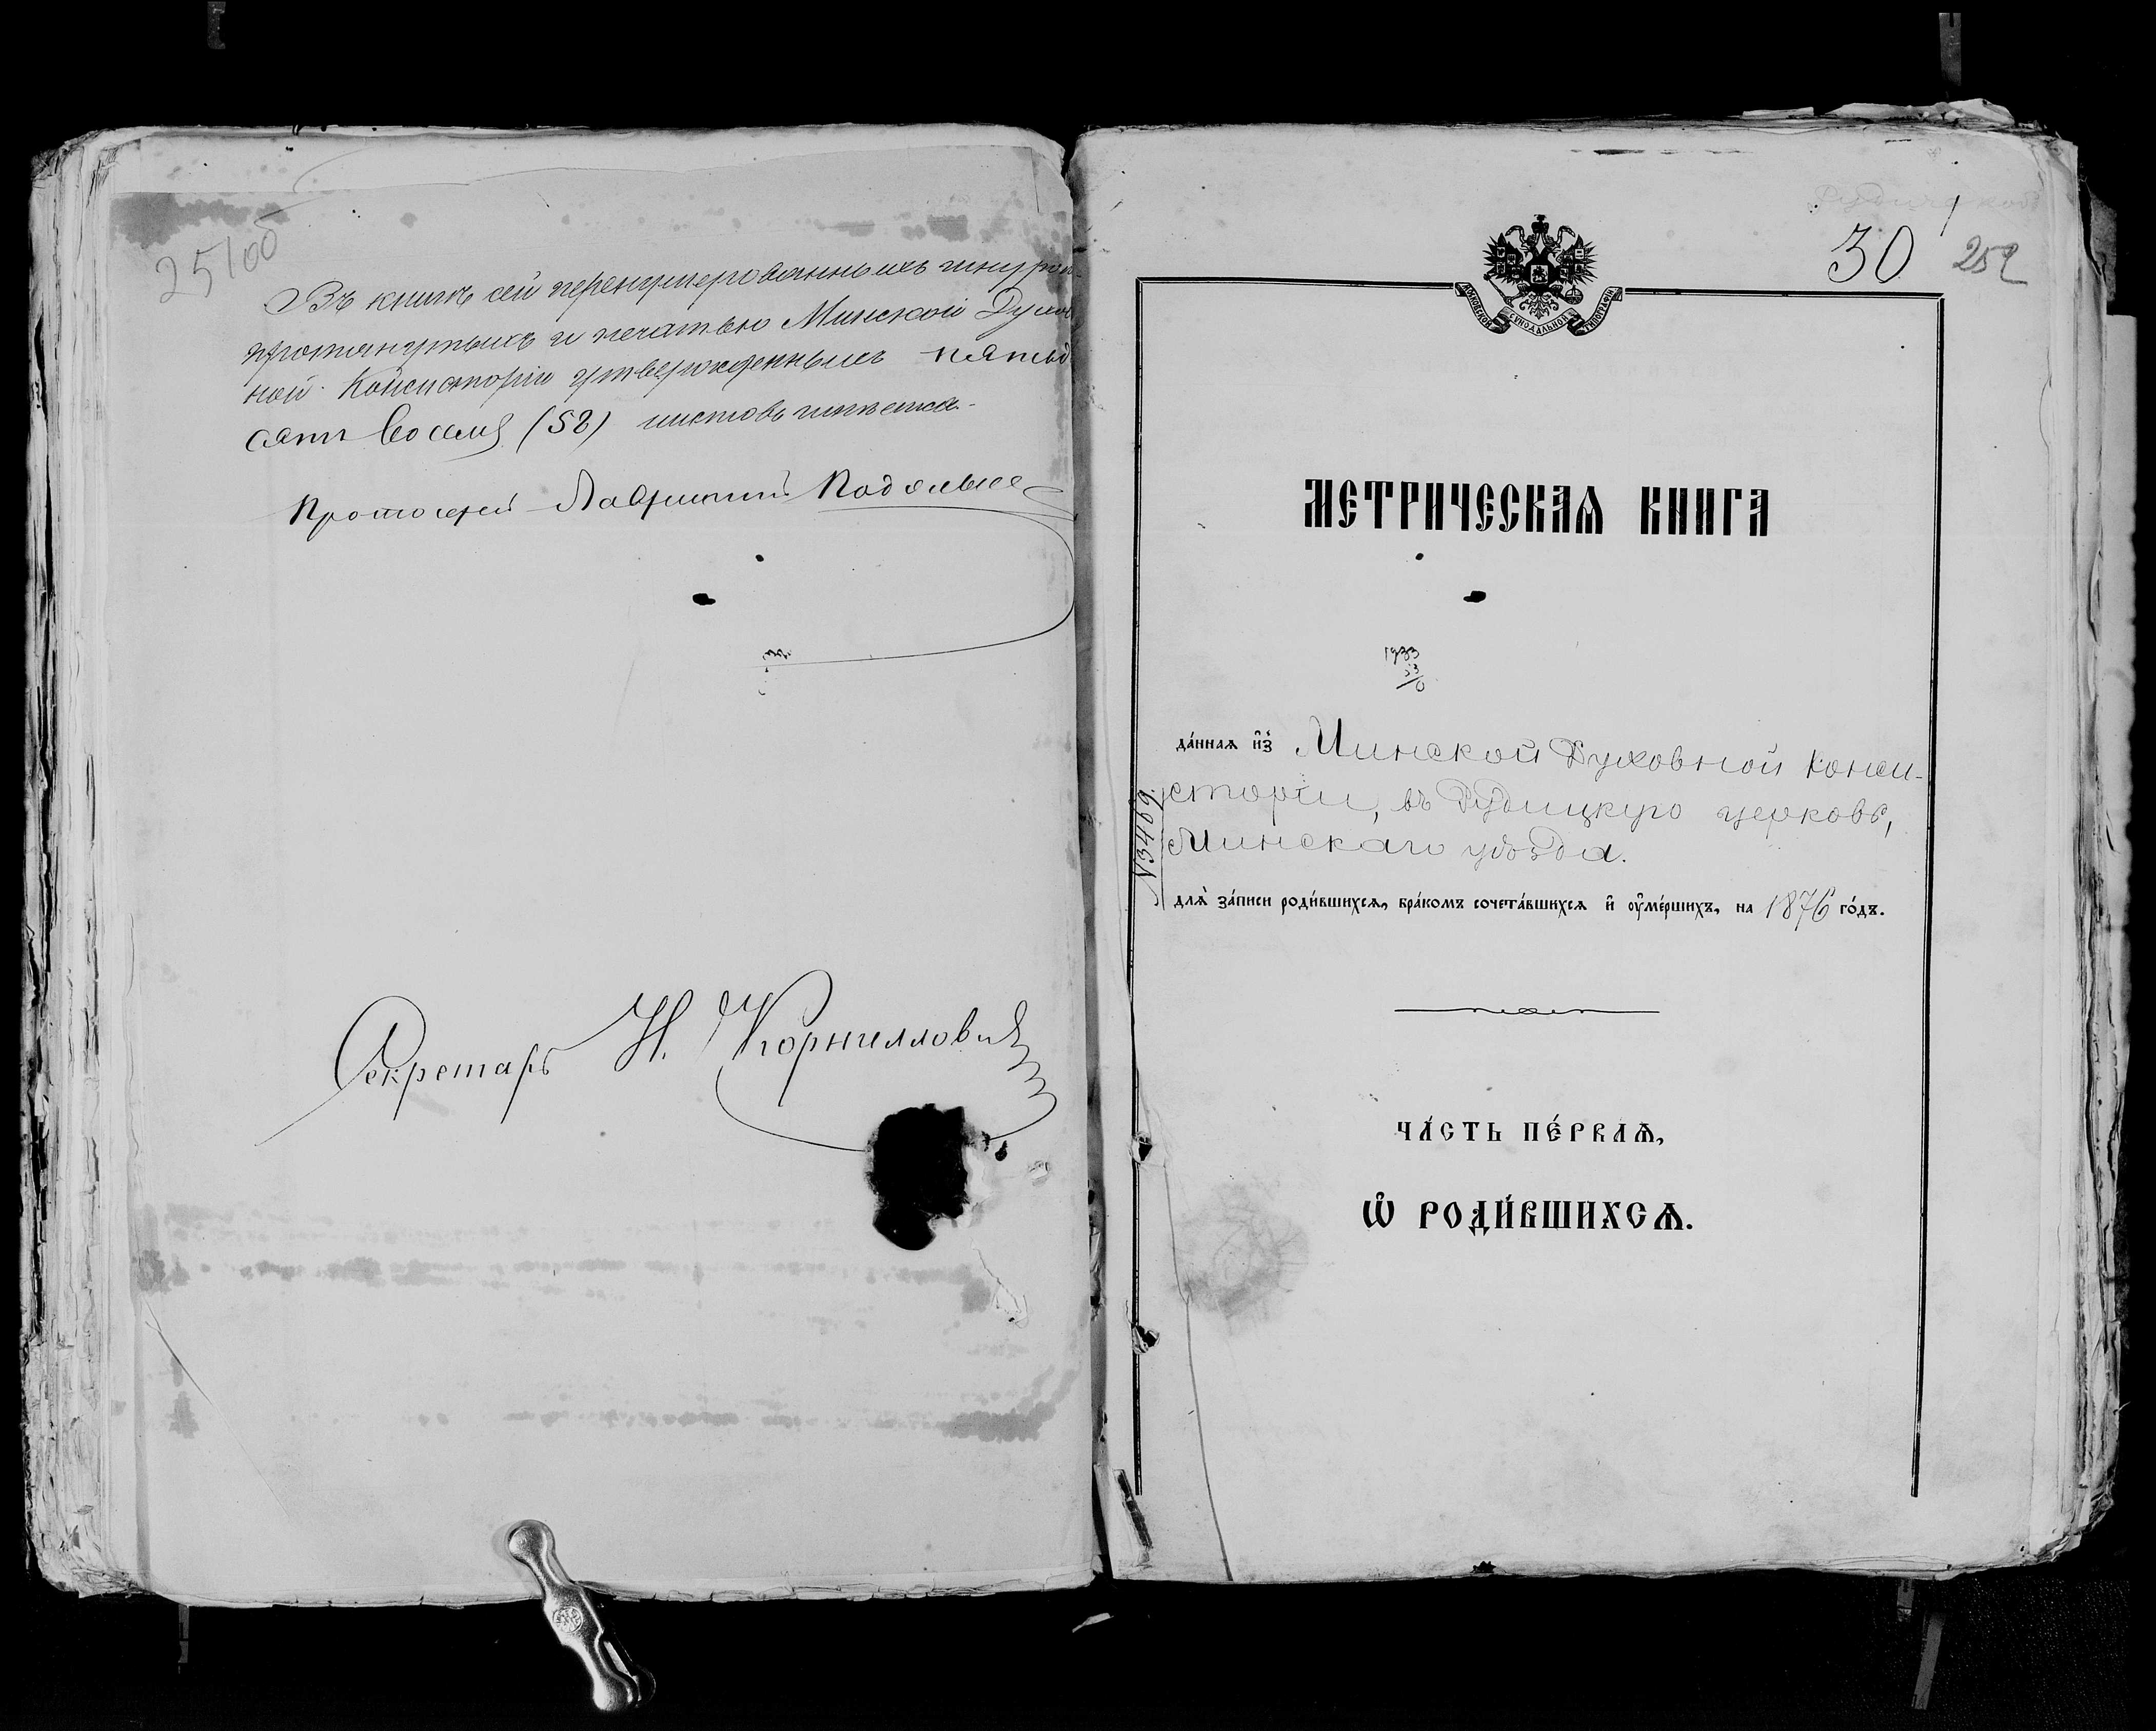 251об
Въ книгѣ сей перенумерованныхъ шнуром-
протянутыхъ и печатью Минской Духов
ной Консисторіи утвержденныхъ пятьд
сятъ восемь (58) листовъ
Протоіерей Лаврентій
Секретарь Н. Корниллович
30
252
МОСКОВСКОЙ СѴНОДАЛЬНОЙ ТИПОГРАФІИ
МЕТРИЧЕСКАѦ КНИГА
1933
да́ннаѧ и҆з̾ Минской Духовной Конси-
сторіи, въ Рудицкую церковь,
Минскаго уѣзда.
№3469.
длѧ̀ за́писи роди́вшихсѧ, бра́комъ сочета́вшихсѧ и҆ ᲂу҆ме́ршихъ, на 1876 го́дъ.
ЧА́СТЬ ПЕ́РВАѦ,
Ѽ РОДИ́ВШИХСѦ.